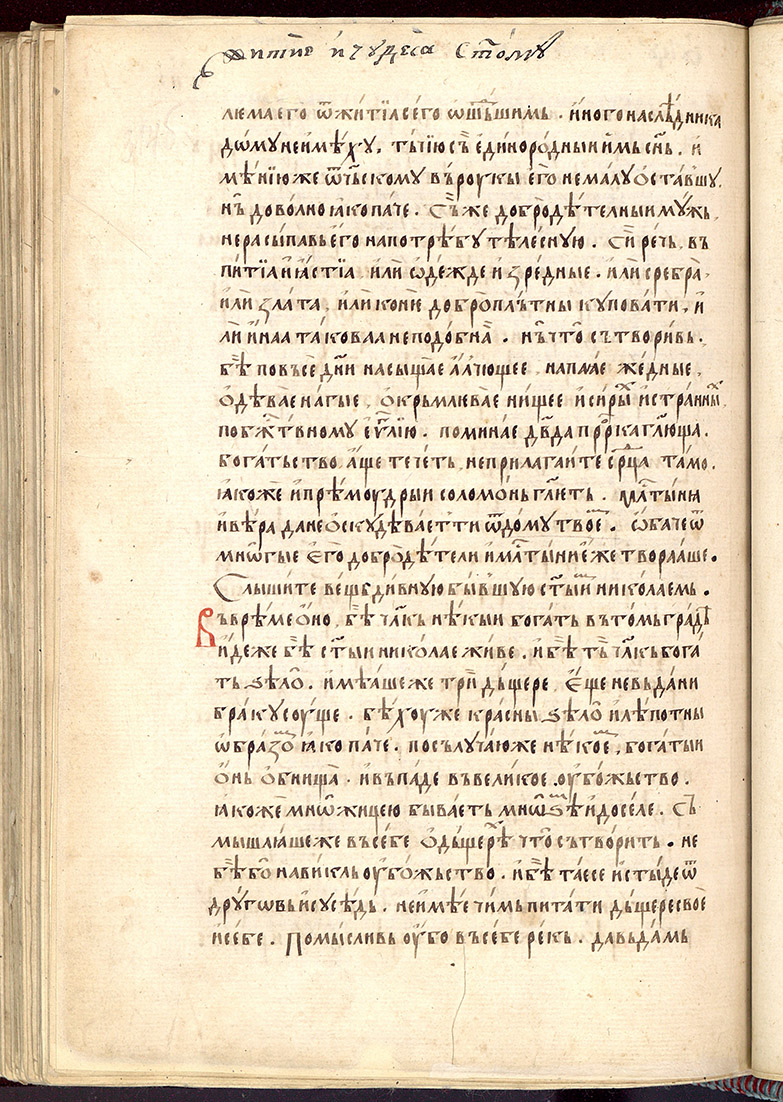 Житие и чꙋдеса Ст҃омꙋ
люма его ѿ житїа сего ѿшⷣьшимь. и҆ного наслѣ́дника
дѡ́мꙋ неимѣ́хꙋ, тъчїю съ единорѡ́дныим̾ь сн҃ь. и҆
мѣ́нїю же ѿч҃ьскомꙋ въ рꙋкы его не малꙋ ѡ҆ста́вшꙋ.
нъ доволно ꙗко паче. Съ же добродѣ́телныи мꙋ́жь,
не расы́павь его на потрѣ́бꙋ тѣле́снꙋю. Си речь. въ
питїа и ꙗстїа, или ѡде́жде изре́дные. или сребра̀,
или зла́та, или ко́ние добропль́тны кꙋпова́ти, и҆
ли и҆наа такова́а неподо́бна. нъ что̀ сътвори́вь.
бѣ̀ по въсе дн҃и насыща́е а҆лчющее, напаꙗе же́дные,
ѡ҆дѣва́е нагые, ѡ҆кръмлева́е ни́щее и си́рыⷯ и стра́нныⷯ.
по бж҃твномꙋ еѵⷢлїю. помина́е дв҃да прⷪ҇рка гл҃юща.
бога́тьство а҆ще тече́ть, не прилага́ите срⷣца та́мо.
ꙗкоже и прѣмꙋдрыи соломѡ́нь гл҃еть. мл҇тыни
и вѣ́ра да не ѡ҆скꙋдѣва́еть ти ѿ домꙋ твое. ѡ҆ба́че ѿ
мнѡ́гые его добродѣ́тели и мл҇тынѥ еже твораа́ше.
Слы́шите ве́щь ди́внꙋю бы́вшꙋю ст҃ыи никола́емь.
Въ врѣ́ме ѡ҆но, бѣ̀ чл҃кь нѣ́кыи бога́ть въ томь гра́дѣ
и҆деже бѣ̀ ст҃ыи никола́е живе. и бѣ̀ тъ чл҃кь бога́
ть ѕѣлѡ̀. и҆мѣа́ше же трѝ дъ́щере, е҆ще не въда́ни
бра́кꙋ сꙋще. бѣ́хꙋ же кра́сны ѕѣлѡ̀ и лѣ́потны
ѡ҆бра́зо ꙗко па́че. по сълꙋча́ю же нѣ́кое, бога́тыи
ѡ҆нь ѡ҆бнища̀. и въпаде въ вели́кое ᲂу҆бо́жьство.
ꙗко́же мнѡ́жицею быва́еть мнѡ́ѕѣ и досе́ле. Съ
мышлꙗа́ше же въ се́бе ѡ дъщереⷯ что̀ сътвори́ть. не
бѣ̀ бо навы́кль ᲂу҆бо́жьство. и бѣ̀ тае се и сты́де ѿ
дрꙋгѡвь и сꙋсѣ́дь. не имѣ́е чимь пита́ти дъ́щере свое
и се́бе. Помы́сливь ᲂу҆бо въ се́бе ре́къ. да въда́мь